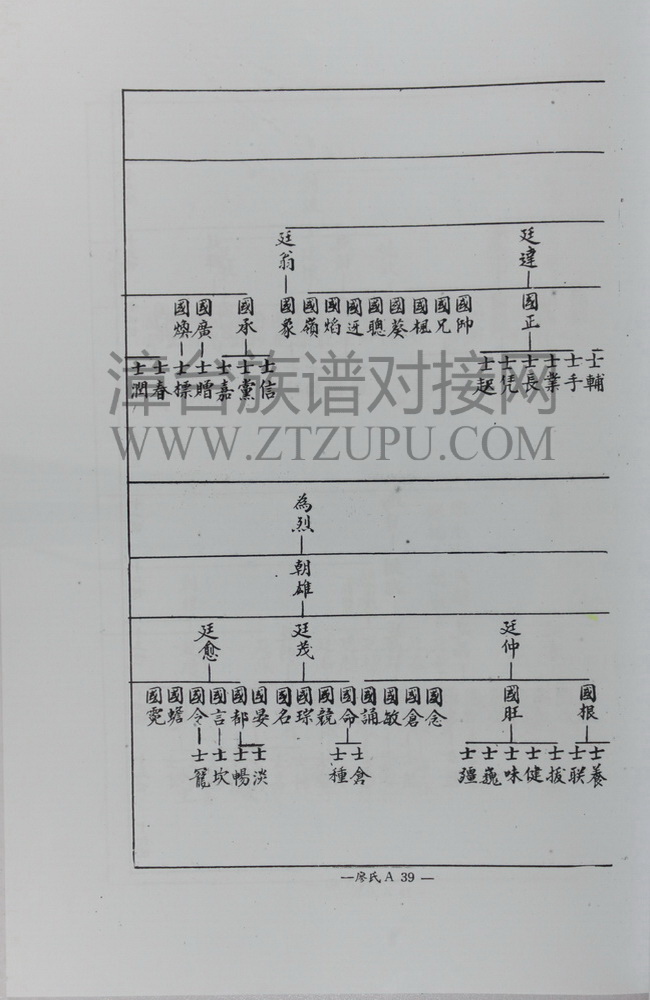 廷違
廷翁
國正
國帥
國兄
國楓
國葵
國聰
國迓
國焰
國嶺
國象
國承
國廣
國煥
士輔
士手
士業
士長
士凭
士起
士信
士黨
士嘉
士贈
士標
士春
士潤
漳台族谱对接网
WWW.ZTZUPU.COM
為烈
朝雄
廷仲
廷茂
廷愈
國根
國旺
國念
國倉
國敏
國誦
國命
國競
國琮
國名
國晏
國都
國言
國令
國蟾
國霓
士養
士联
士拔
士健
士味
士巍
士疆
士倉
士種
士淡
士暢
士坎
士寵
—廖氏 A 39 —